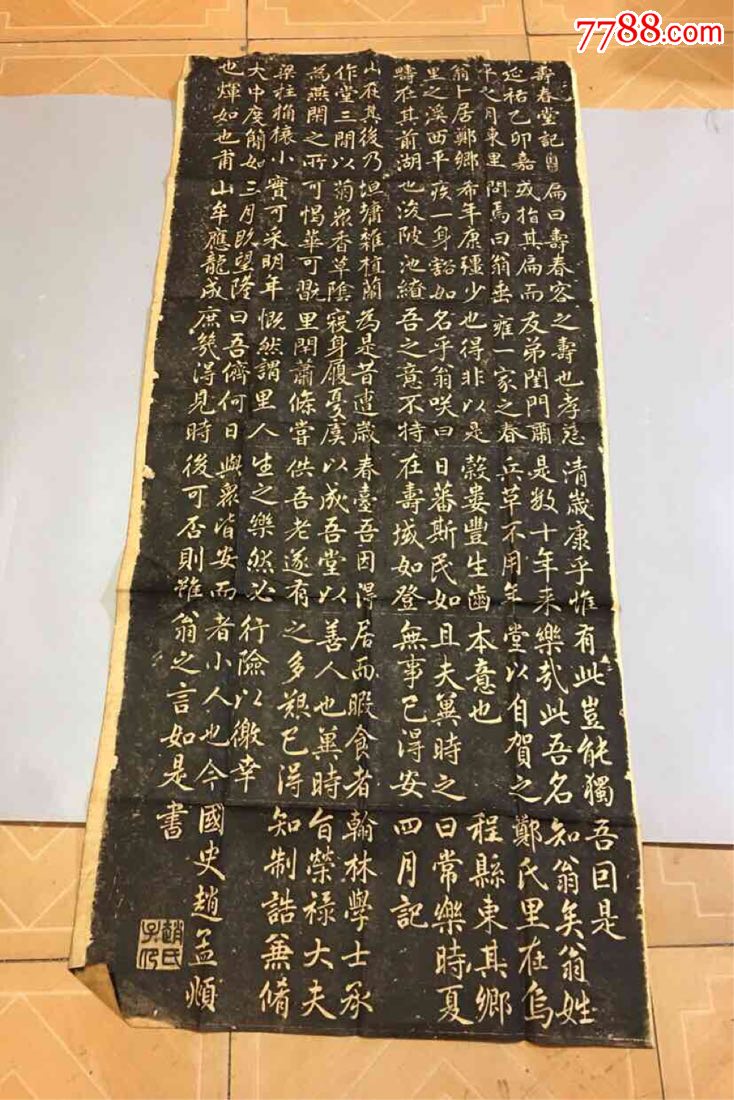 7788.com
壽春堂記
延祐乙卯嘉
平之月東里
翁卜居鄭鄉
里之溪西平
疇在其前湖
山在其後乃
作堂三間以
為燕閒之所
梁柱桷榱小
大中度簡如
也煇如也甫
扁曰壽春容
或指其扁而
問焉曰翁垂
希年康彊少
疾一身豁如
也浚陂池繚
垣墉雜植蘭
菊眾香草陰
可愒華可翫
實可采明年
三月既望隆
山牟應龍成
之壽也孝慈
友弟閨門肅
雍一家之春
也得非以是
名乎翁咲曰
吾之意不特
為是昔遭歲
寢身履憂虞
里閈蕭條嘗
慨然謂里人
曰吾儕何日
庶幾得見時
清歲康乎惟
是數十年来
兵草不用年
穀婁豐生齒
日蕃斯民如
在壽域如登
春臺吾因得
以成吾堂以
供吾老遂有
生之樂然必
與眾皆安而
後可否則雖
有此豈能獨
樂哉此吾名
堂以自賀之
本意也
且夫冀時之
無事已得安
居而暇食者
善人也冀時
之多艱已得
行險以徼幸
者小人也今
翁之言如是
吾曰是
知翁矣翁姓
鄭氏里在烏
程縣東其鄉
曰常樂時夏
四月記
翰林學士承
旨榮禄大夫
知制誥兼脩
國史趙孟頫
書
趙氏子昂